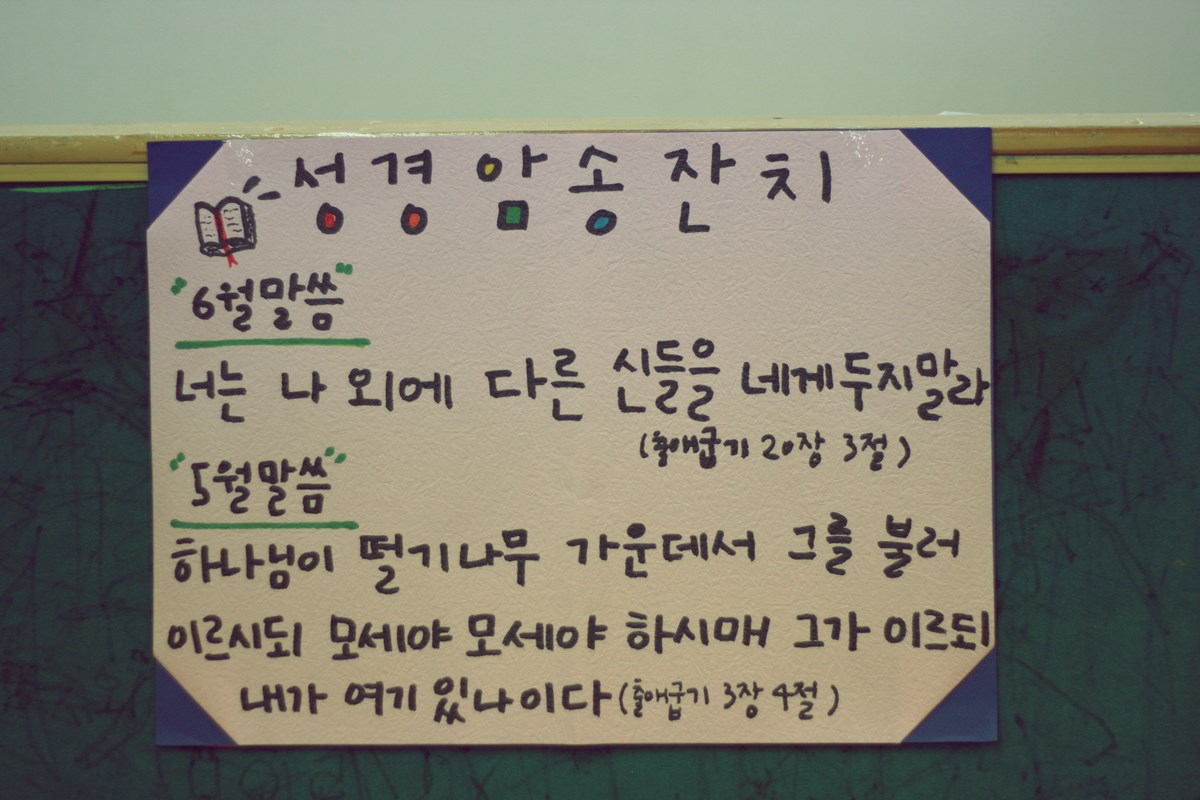 성경암송잔치
"6월말씀"
너는 나 외에 다른 신들을 네게두지말라
(출애굽기 20장 3절)
"5월말씀"
하나님이 떨기나무 가운데서 그를 불러
이르시되 모세야 모세야 하시매 그가 이르되
내가 여기 있나이다 (출애굽기 3장 4절)